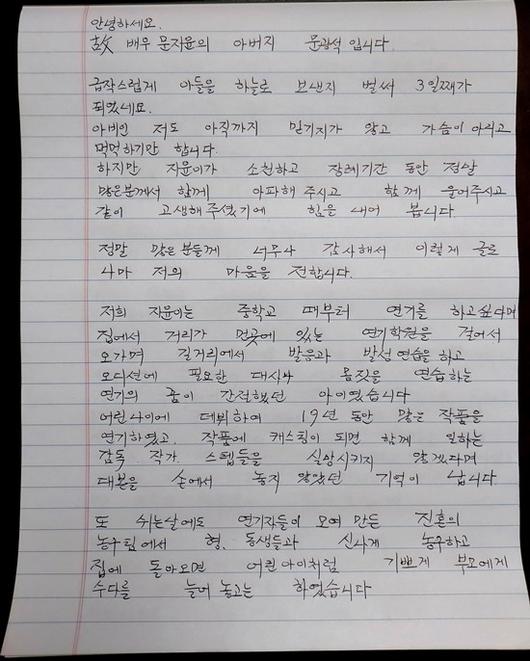 안녕하세요.
故 배우 문지윤의 아버지 문광석 입니다.
급작스럽게 아들을 하늘로 보낸지 벌써 3일째가
되었네요.
아비인 저도 아직까지 믿기지가 않고 가슴이 아리고
먹먹하기만 합니다.
하지만 지윤이가 소천하고 장례기간 동안 정말
많은분께서 함께 아파해 주시고 함께 울어주시고
같이 고생해주셨기에 힘을 내어 봅니다
정말 많은 분들께 너무나 감사해서 이렇게 글로
나마 저의 마음을 전합니다.
저희 지윤이는 중학교 때부터 연기를 하고싶다며
집에서 거리가 먼곳에 있는 연기학원을 걸어서
오가며 길거리에서 발음과 발성연습을 하고
오디션에 필요한 대사나 몸짓을 연습하는
연기의 꿈이 간절했던 아이였습니다
어린나이에 데뷔하여 19년 동안 많은 작품을
연기하였고. 작품에 캐스팅이 되면 함께 일하는
감독 작가. 스텝들을 실망시키지 않겠다며
대본을 손에서 놓지 않았던 기억이 납니다
또 쉬는날에도 연기자들이 모여 만든 진혼의
농구팀에서 형. 동생들과 신나게 농구하고
집에 돌아오면 어린아이처럼 기쁘게 부모에게
수다를 늘어놓고는 하였습니다